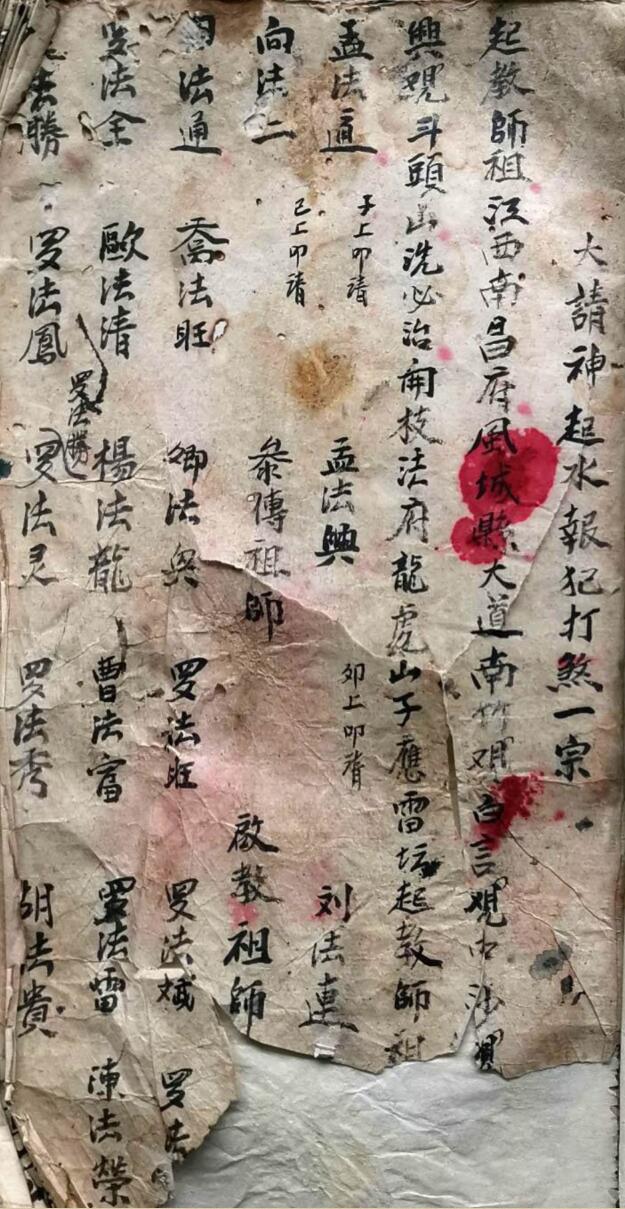 大請神起水報犯打煞一宗
起教師祖江西南昌府風城縣大道南竹观白言观中法
興観斗頭山洗必治開枝法府龍虎山子應雷坛起教師祖
孟法道 子上叩請 孟法興 卯上叩請 刘法連
向法二 己上叩請 叅傳祖師 啟教祖師
法通 喬法旺 卿法興 罗法旺 罗法 罗法
罗法全 歐法清 楊法龍 曹法富 罗法雷 陳法榮
罗法勝
法勝 罗法鳳 罗法灵 罗法秀 胡法貴